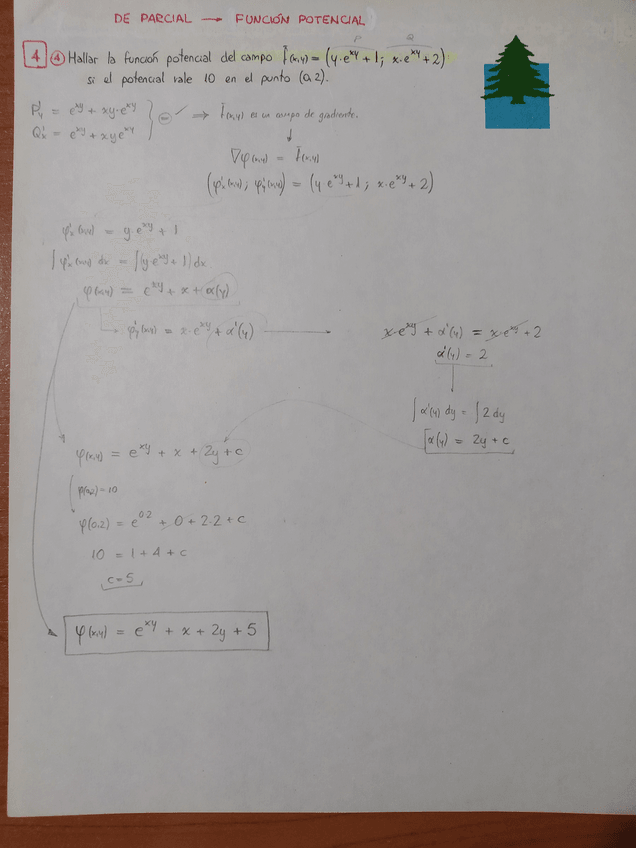 DE PARCIAL → FUNCIÓN POTENCIAL
4 4 Hallar la función potencial del campo f̄(x,y) = (y·e^xy + 1 ; x·e^xy + 2)
P Q
si el potencial vale 10 en el punto (0,2).
P'y = e^xy + xy·e^xy
Q'x = e^xy + xy e^xy
= ✓ ⇒ f̄(x,y) es un campo de gradiente.
∇φ(x,y) = f̄(x,y)
(φ'x(x,y) ; φ'y(x,y)) = (y·e^xy + 1 ; x·e^xy + 2)
φ'x(x,y) = y·e^xy + 1
∫ φ'x(x,y) dx = ∫(y·e^xy + 1) dx
φ(x,y) = e^xy + x + α(y)
φ'y(x,y) = x·e^xy + α'(y)
x·e^xy + α'(y) = x·e^xy + 2
α'(y) = 2
∫ α'(y) dy = ∫ 2 dy
α(y) = 2y + c
φ(x,y) = e^xy + x + 2y + c
φ(0,2) = 10
φ(0,2) = e^0·2 + 0 + 2·2 + c
10 = 1 + 4 + c
c = 5
φ(x,y) = e^xy + x + 2y + 5